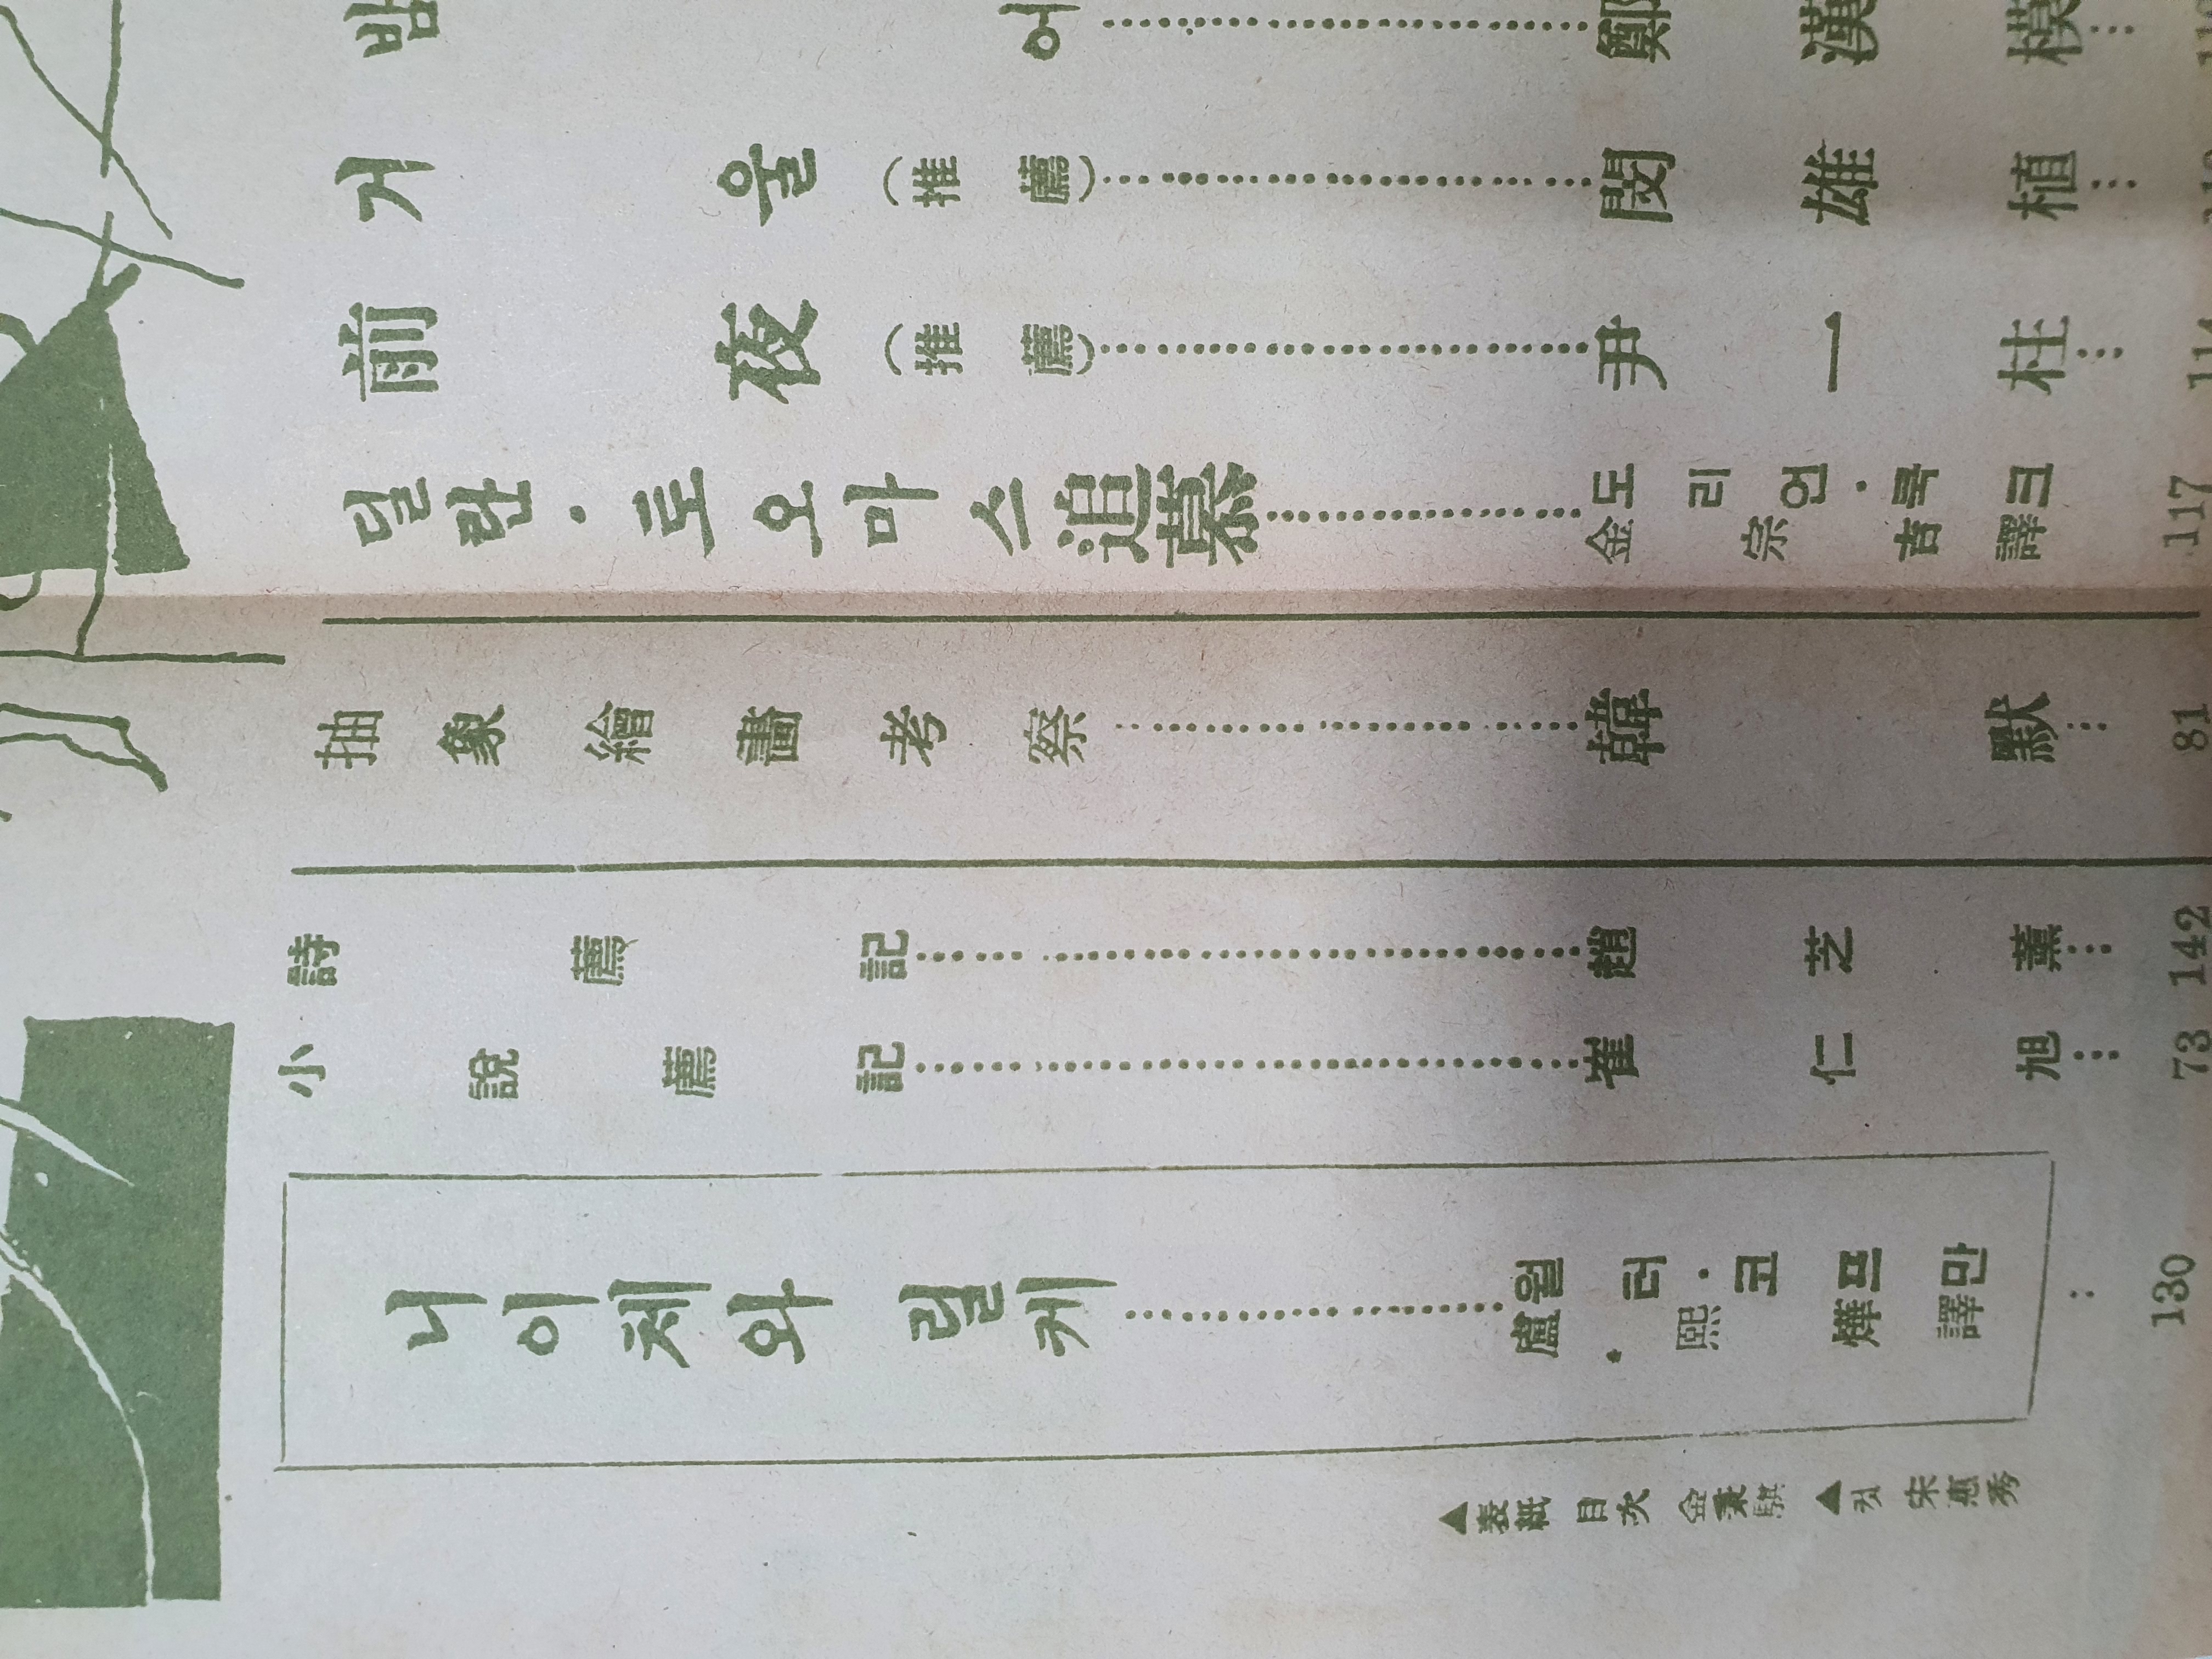 밤 어 鄭漢模
거울(推薦) 閔雄植
前夜(推薦) 尹一柱
딜란·토오마스追慕 도리언·쿡크
金宗吉譯 117
抽象繪畵考察 韓默 81
詩薦記 趙芝薰 142
小說薦記 崔仁旭 73
니이체와 릴케 월터·코프만
盧熙燁譯 130
▲表紙 目次 金秉騏 ▲컷 宋惠秀